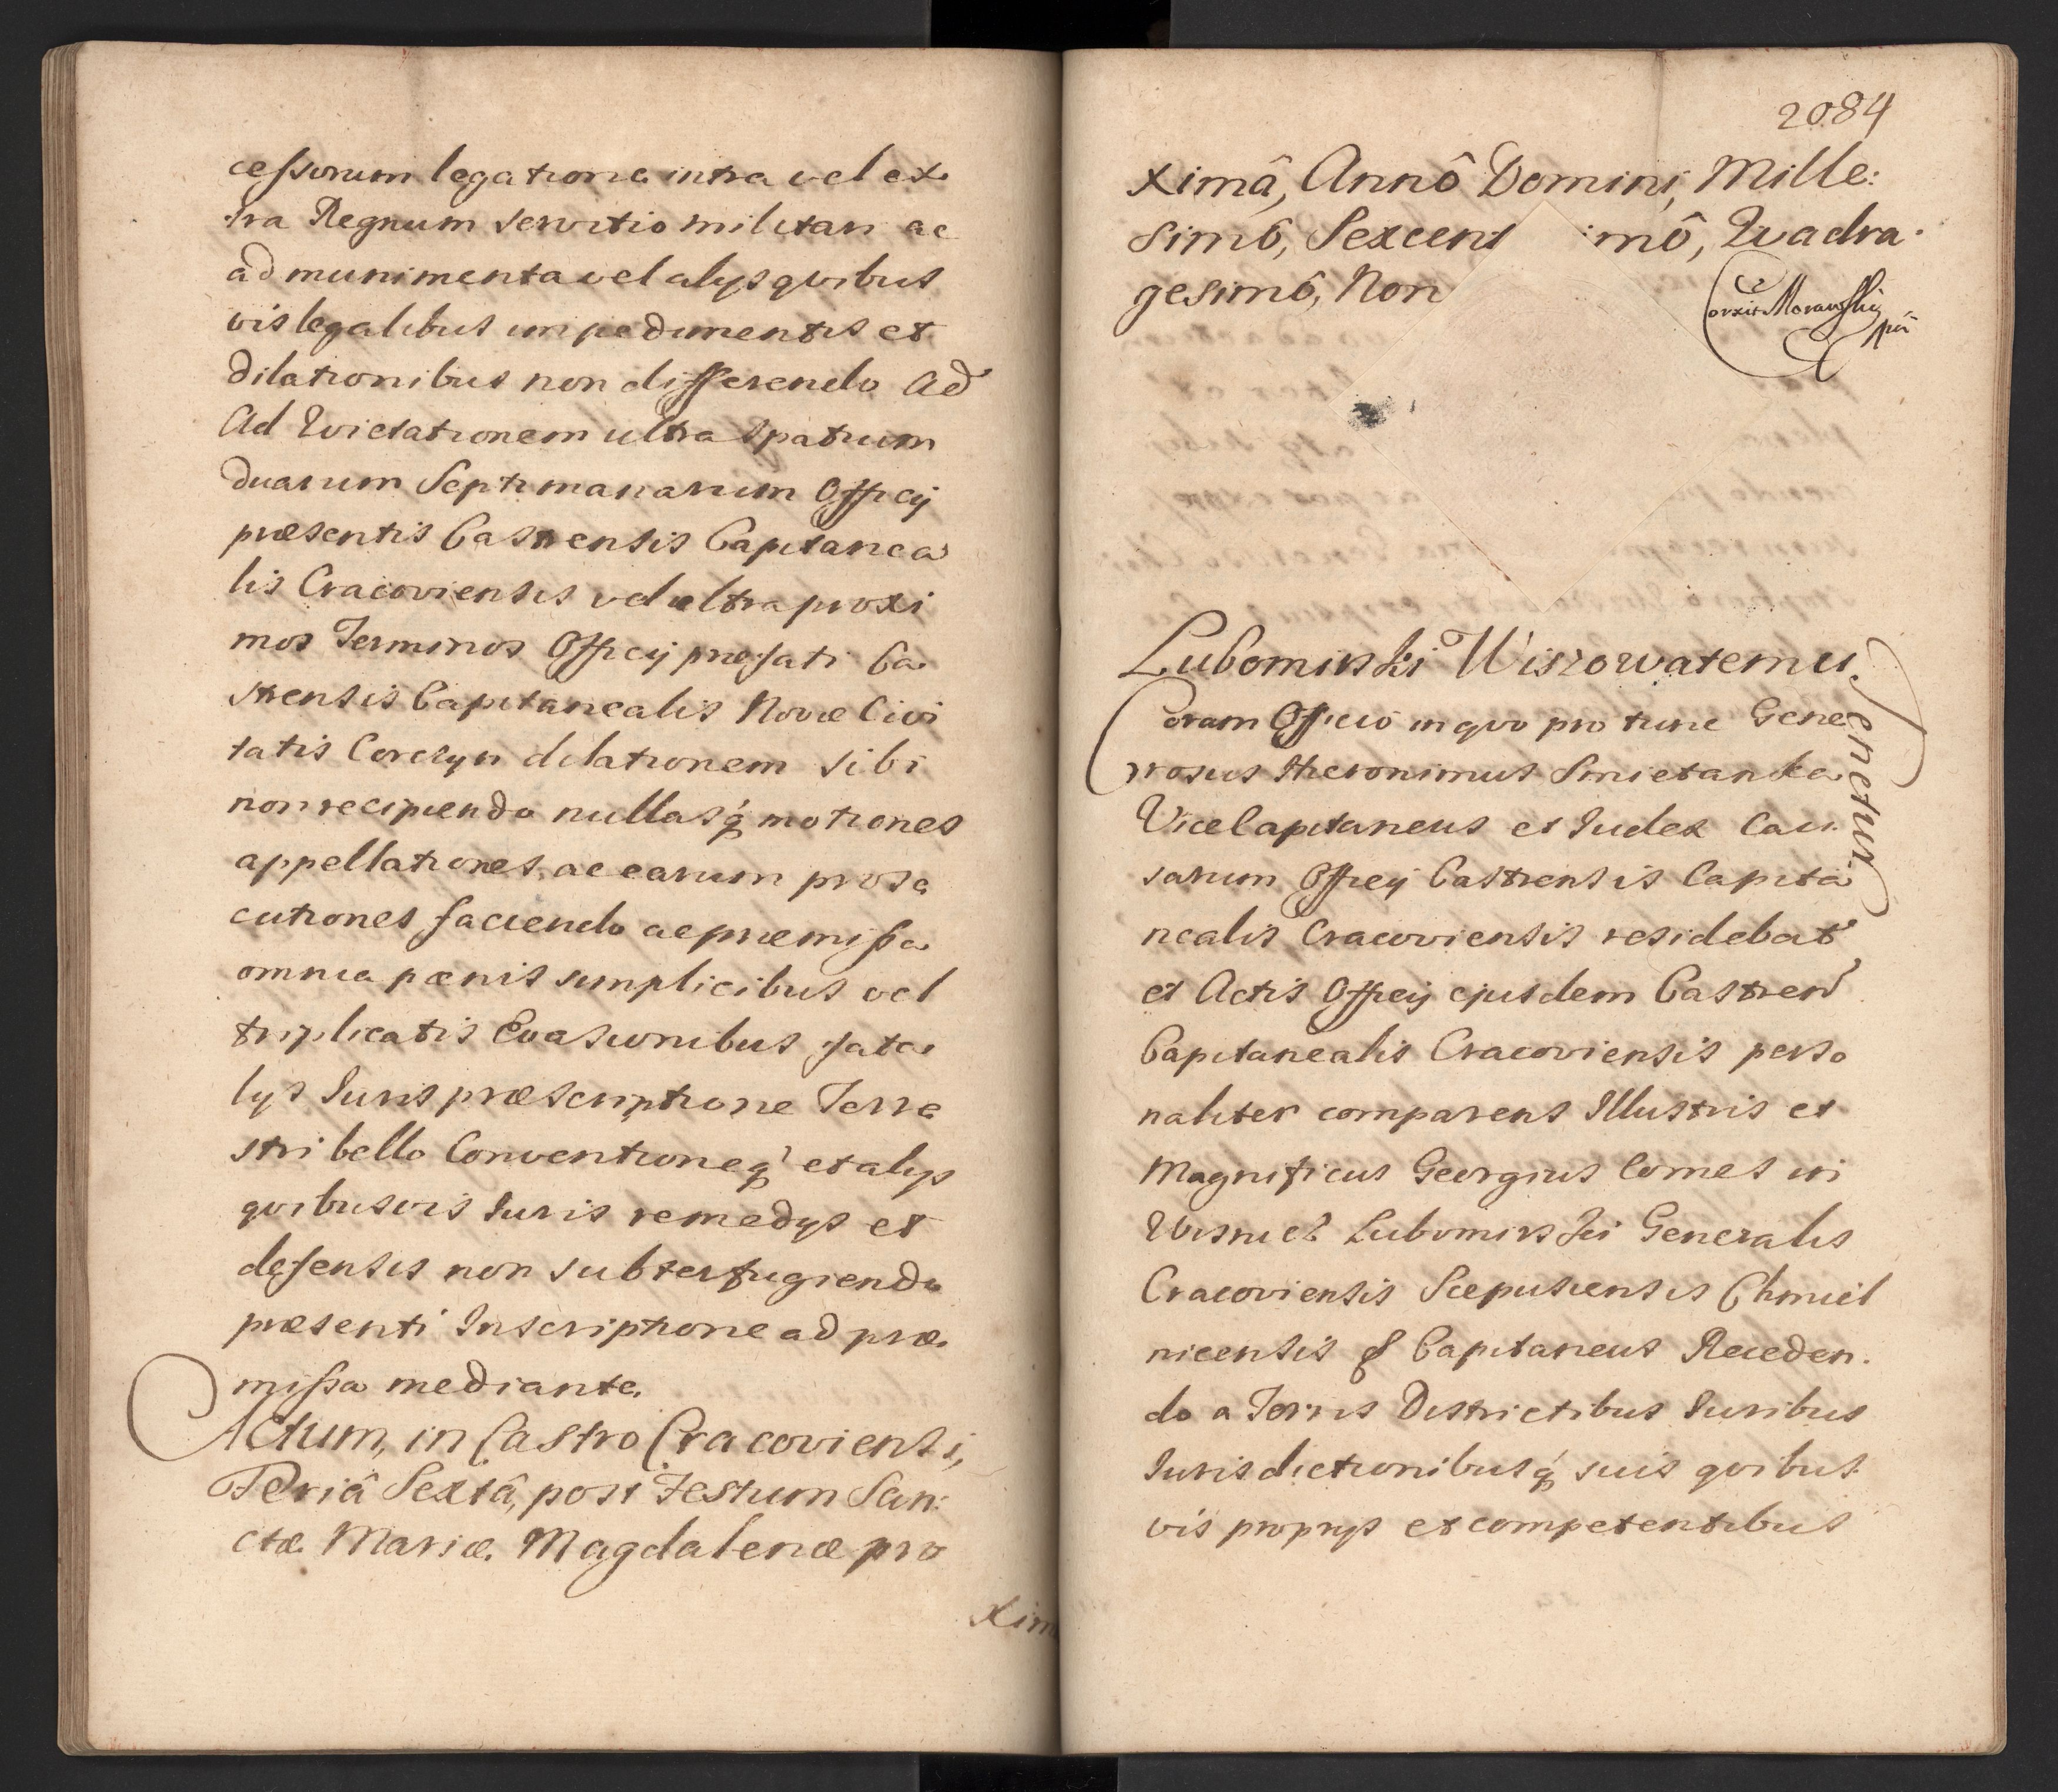 cessorum legatione intra vel ex
tra Regnum servitio militari ac
ad munimenta vel alys qvibus
vis legalibus impedimentis et
dilationibus non differendo Ad
Ad Evictationem ultra spatium
duarum Septimanarum Officij
præsentis Castrensis Capitanea
lis Cracoviensis vel ultra proxi
mos Terminos Officij præfati Ca
strensis Capitanealis Novæ Civi
tatis Corczyn dilationem sibi
non recipiendo nullasq́ motiones
appellationes ac earum prose
cutiones faciendo ac præmissa
omnia pœnis simplicibus vel
triplicatis Evasionibus fata
lys Iuris præscriptione Terre
stri bello Conventioneq́ et alys
qvibusvis Iuris remedys et
defensis non subterfugiendo
præsenti Inscriptione ad præ
missa mediante.
Actum, in Castro Cracoviensi,
Feriâ Sextâ, post Festum San:
ctæ Mariæ Magdalenæ pro
xim
2084
ximâ, Annô Domini, Mille:
simô, Sexcent imô, Qvadra
gesimô, Non
Lubomirski Wiszowatemu
Tenetur
Coram Officio in qvo pro tunc Gene
rosus Hieronimus Smietanka
ViceCapitaneus et Iudex Cau
sarum Officij Castrensis Capita
nealis Cracoviensis residebat
et Actis Officij ejusdem Castren
Capitanealis Cracoviensis perso
naliter comparens Illustris et
Magnificus Georgius Comes in
Wisnicz Lubomirski Generalis
Cracoviensis Scepusiensis Chmiel
nicensis & Capitaneus Receden
do a Terris Districtibus Iuribus
Iurisdictionibusq́ suis qvibus
vis proprys et competentibus